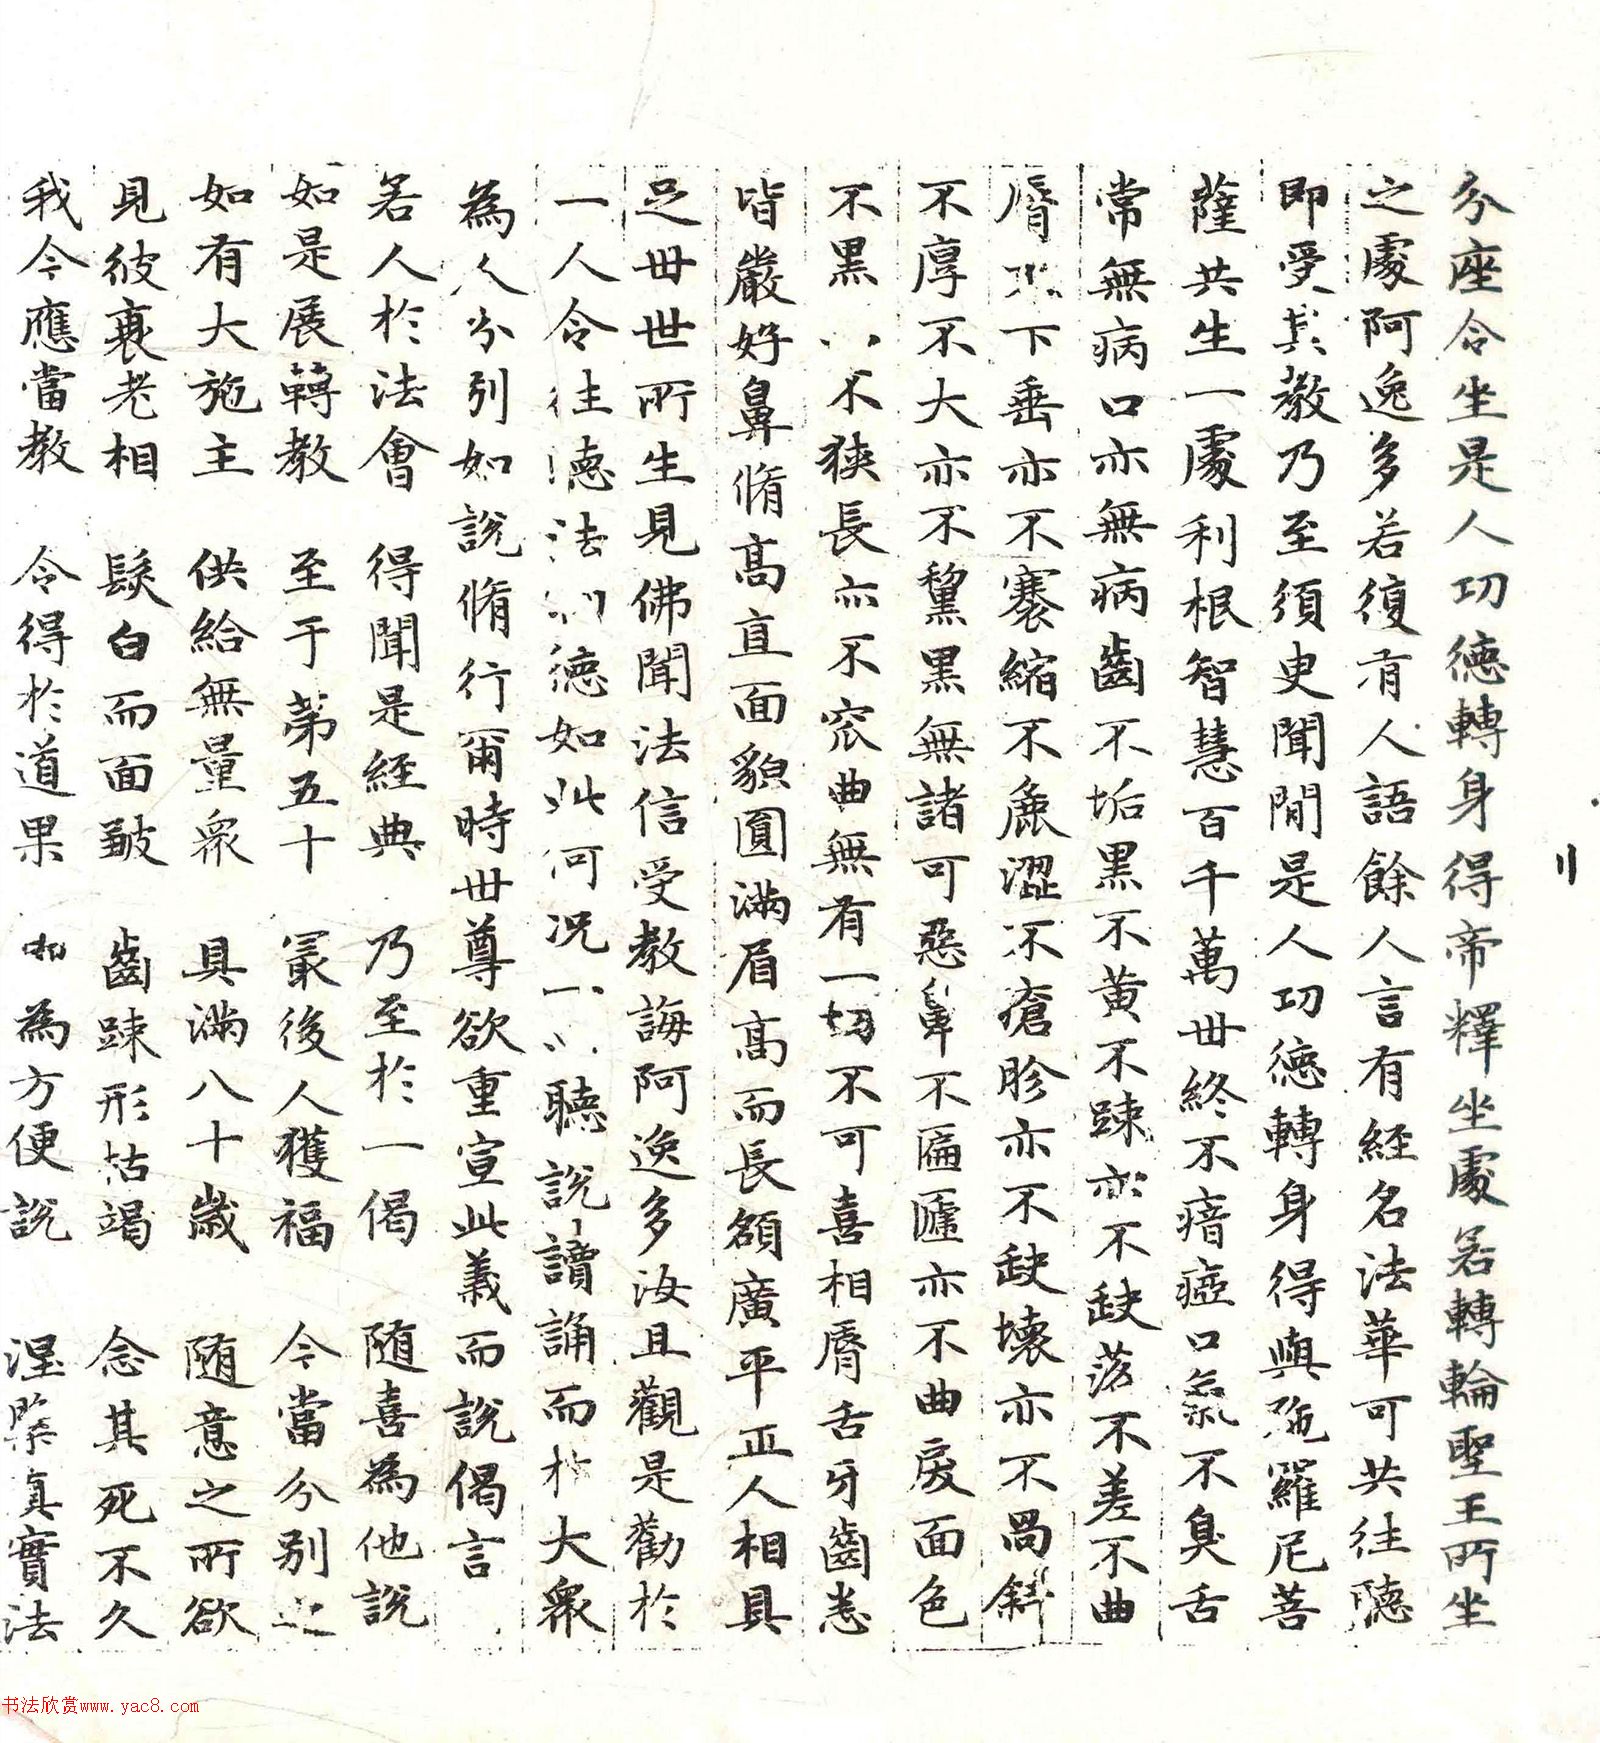 分座令坐是人功德轉身得帝釋坐處若轉輪聖王所坐
之處阿逸多若復有人語餘人言有經名法華可共往聽
即受其教乃至須臾聞是人功德轉身得與陁羅尼菩
薩共生一處利根智慧百千萬世終不瘖瘂口氣不臭舌
常無病口亦無病齒不垢黑不黃不踈亦不缺落不差不曲
脣不下垂亦不褰縮不麁澀不瘡胗亦不缺壞亦不喎斜
不厚不大亦不黧黑無諸可惡鼻不匾㔸亦不曲戾面色
不黑不狹長亦不窊曲無有一切不可喜相脣舌牙齒悉
皆嚴好鼻脩高直面貌圓滿眉高而長額廣平正人相具
足世世所生見佛聞法信受教誨阿逸多汝且觀是勸於
一人令往聽法功德如此何況一心聽說讀誦而於大衆
為人分別如說脩行爾時世尊欲重宣此義而說偈言
若人於法會 得聞是經典 乃至於一偈 隨喜為他說
如是展轉教 至于第五十 冣後人獲福 今當分別之
如有大施主 供給無量衆 具滿八十歲 隨意之所欲
見彼衰老相 髮白而面皺 齒踈形枯竭 念其死不久
我今應當教 令得於道果 即為方便說 涅槃真實法
书法欣赏www.yac8.com